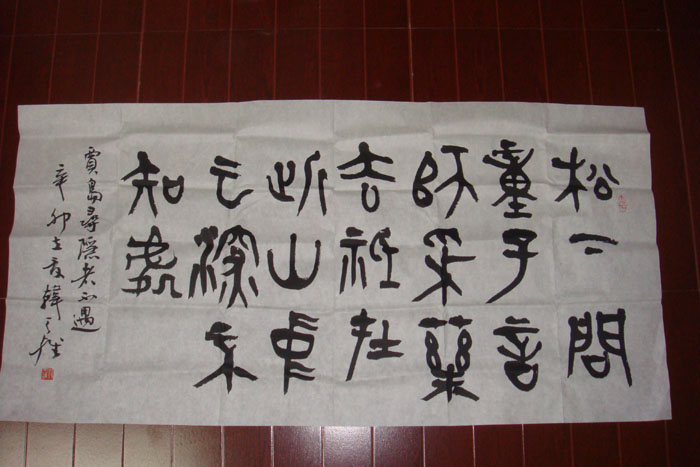 松下問
童子言
師采藥
去祗在
此山中
云深不
知處
賈島尋隱者不遇
辛卯立夏韓之